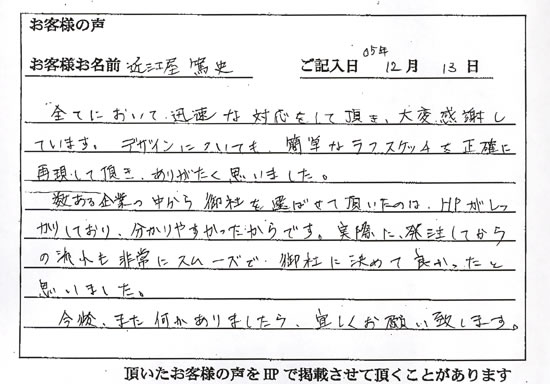 お客様の声
05年
お客様お名前 近江屋 篤史 ご記入日 12月 13日
全てにおいて、迅速な対応をして頂き、大変感謝し
ています。デザインについても、簡単なラフスケッチを正確に
再現して頂き、ありがたく思いました。
数ある企業の中から御社を選ばせて頂いたのは、HPがしっ
かりしており、分かりやすかったからです。実際に、発注してから
の流れも非常にスムーズで、御社に決めて良かったと
思いました。
今後、また何かありましたら、宜しくお願い致します。
頂いたお客様の声をHPで掲載させて頂くことがあります